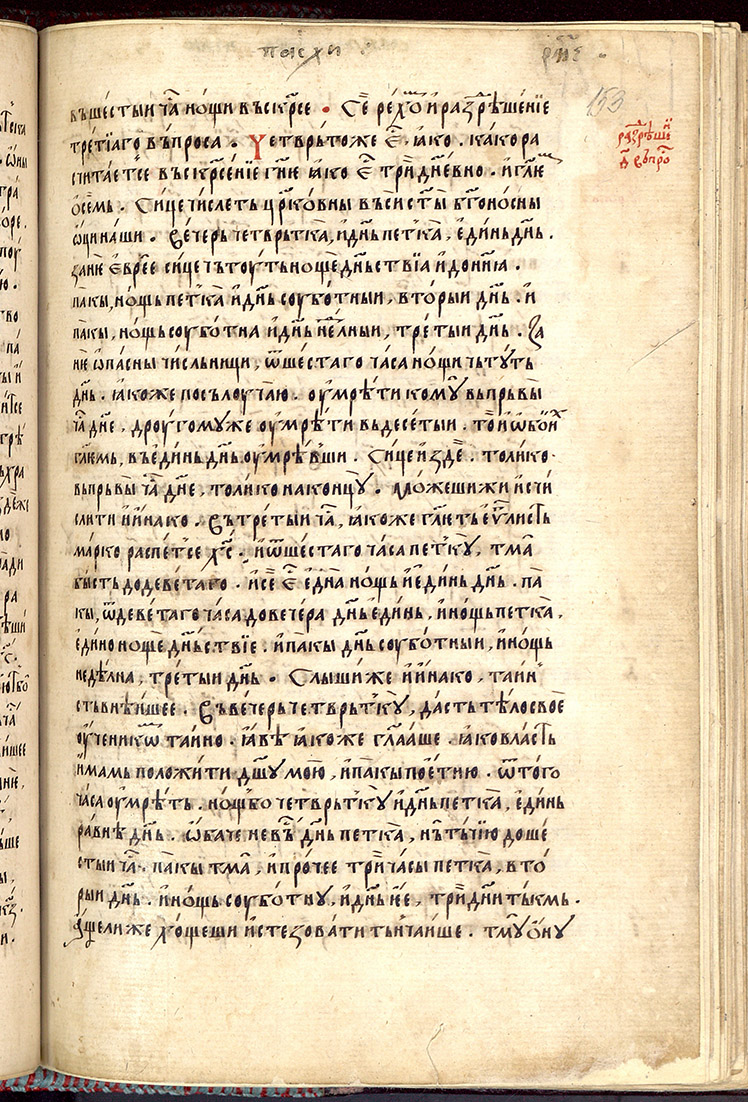 пасхи
153
въшестыи ча нощи въскрсе · Се рехѡⷨ и разрѣшенїе
третїаго въпроса · Четврьтоже є҆ ꙗко · како ра
разрѣшенїе
д҃ въпро
считаетсе въскрсенїе гне ꙗко є҆ тридневно · и глю
осемь · Сице числеть црковны въси сты бгоносны
ѡци наши · вечерь четврьтка, и днь петка, единь днь ·
зане євреє сице чьтоуть нощедньствїа и донн꙯а ·
пакы, нощь петка и днь соуботныи, вторыи днь · и
пакы, нощь соуботна и днь нелныи, третыи днь · За
не ѡпасны числьници, ѿ шестаго часа нощи чьтуть
днь · ꙗкоже посълоучаю · оумрѣти комꙋ вьпрьвы
ча дне, дроугомуже оумрѣти вьдесетыи · то и ѡбоих
глемь, въединь днь оумрѣвши · Сице и зде · толико
вьпрьвы ча дне, толико наконцꙋ · Можешижи исчи
слити и инако · Вътретыи ча, ꙗкоже глеть еѵлисть
марко распетсе хс · и ѿ шестаго часа петкꙋ, тма
бысть додеветаго · и се є҆ една нощь и единь днь · па
кы, ѿ деветаго часа довечера днь единь, и нощь петка,
едино нощедньствїе · и пакы днь соуботныи, и нощь
неделна, третыи днь · Слышиже и инако, таин
стьвнѣишее · Въвечерь четврьткꙋ, дасть тѣло свое
оученикѡⷨ таино · ꙗвѣ ꙗкоже глааше · ꙗко власть
имамь положити дшꙋ мою, и пакы поетию · ѿ того
часа оумрѣть · нощ бо четврьткꙋ и днь петка, единь
равнѣ днь · ѡбаче не въ днь петка, нь тъчїю до ше
стыи ча · пакы тма, и прочее три часы петка, вто
рыи днь · и нощь соуботнꙋ, и днь не, три дни тъкмь ·
Ѹщелиже хощеши истезовати тъчаише · тмꙋ ѡнꙋ